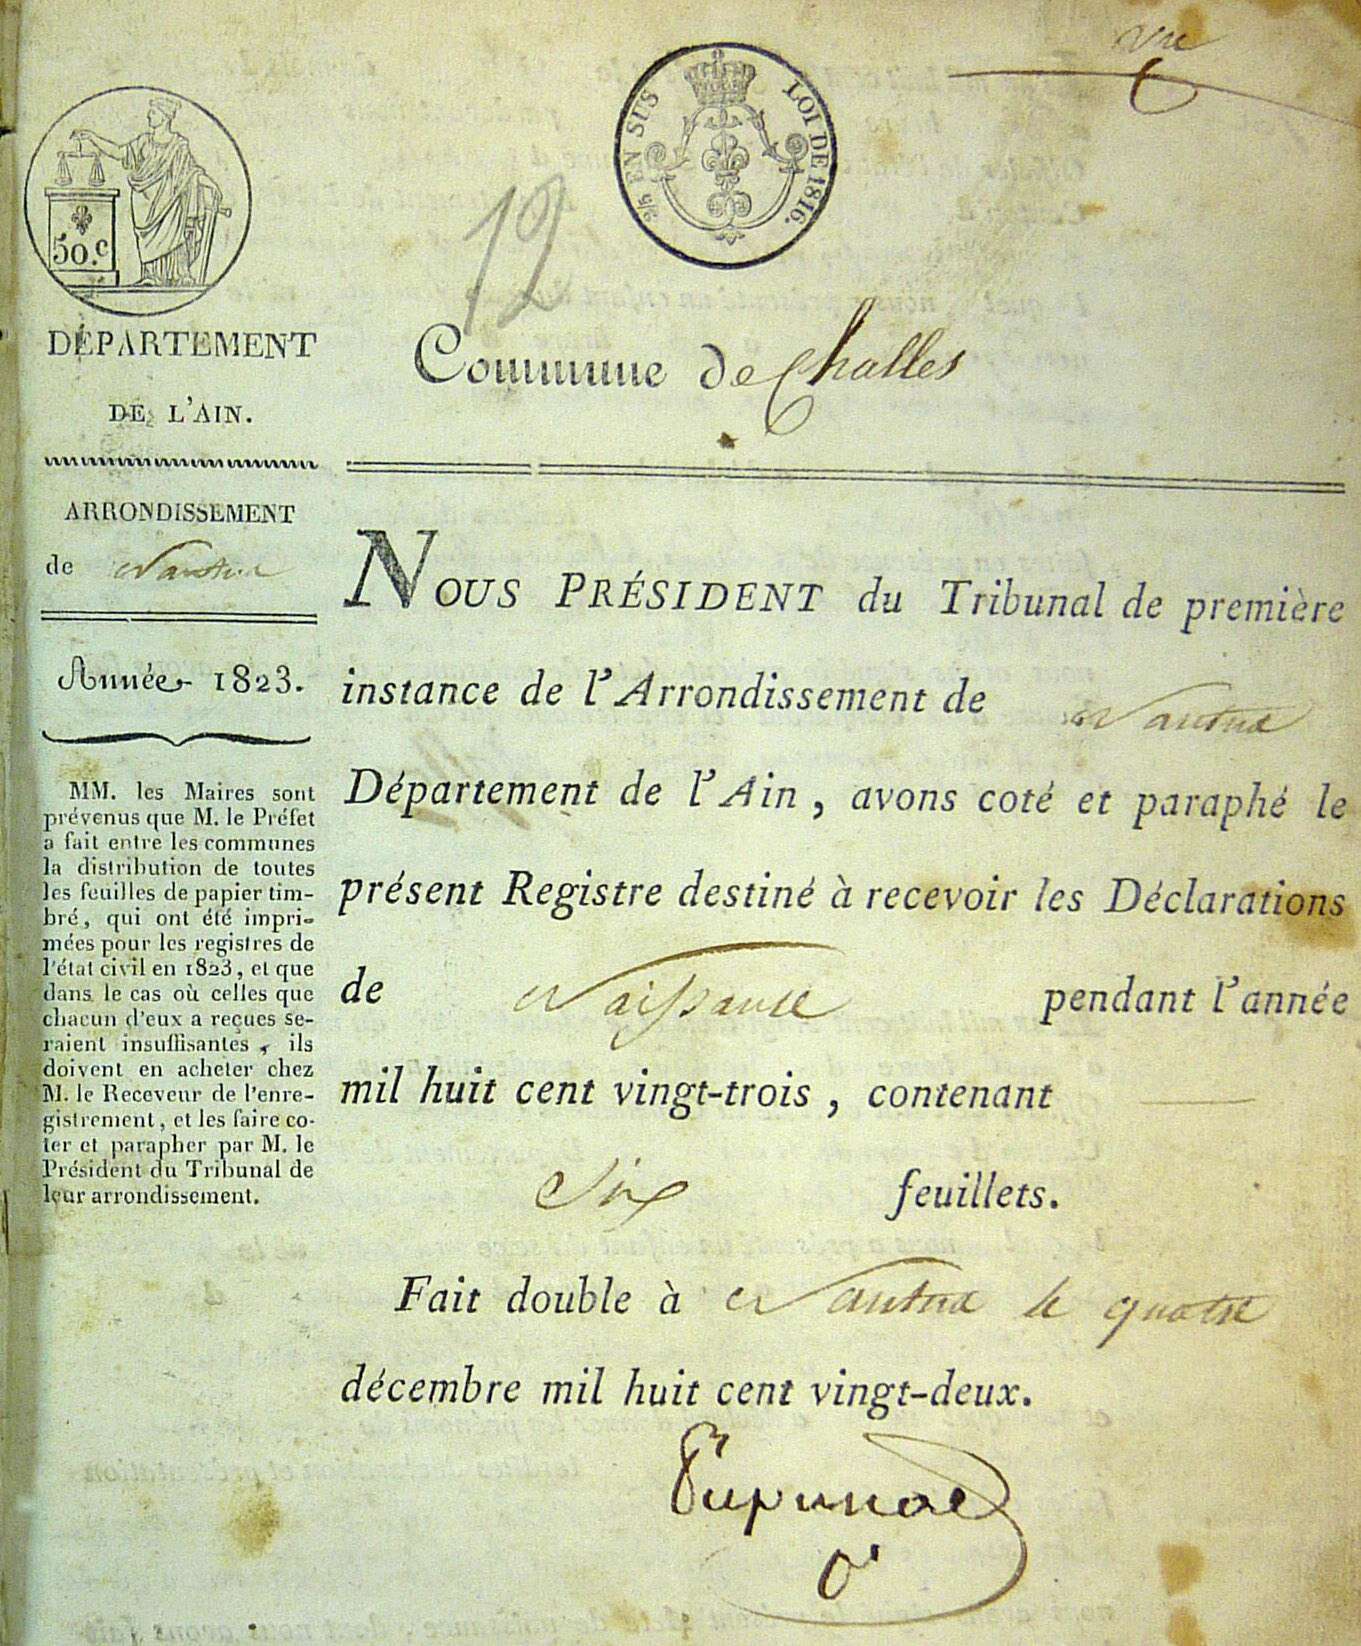 50.c
2/5 EN SUS LOI DE 1816.
12
DÉPARTEMENT
DE L'AIN.
ARRONDISSEMENT
de Nantua
Année 1823.
MM. les Maires sont
prévenus que M. le Préfet
a fait entre les communes
la distribution de toutes
les feuilles de papier tim-
bré, qui ont été impri-
mées pour les registres de
l'état civil en 1823, et que
dans le cas où celles que
chacun d'eux a reçues se-
raient insuffisantes, ils
doivent en acheter chez
M. le Receveur de l'enre-
gistrement, et les faire co-
ter et parapher par M. le
Président du Tribunal de
leur arrondissement.
Commune de Challes
NOUS PRÉSIDENT du Tribunal de première
instance de l'Arrondissement de Nantua
Département de l'Ain, avons coté et paraphé le
présent Registre destiné à recevoir les Déclarations
de Naissance pendant l'année
mil huit cent vingt-trois, contenant
Six feuillets.
Fait double à Nantua le quatre
décembre mil huit cent vingt-deux.